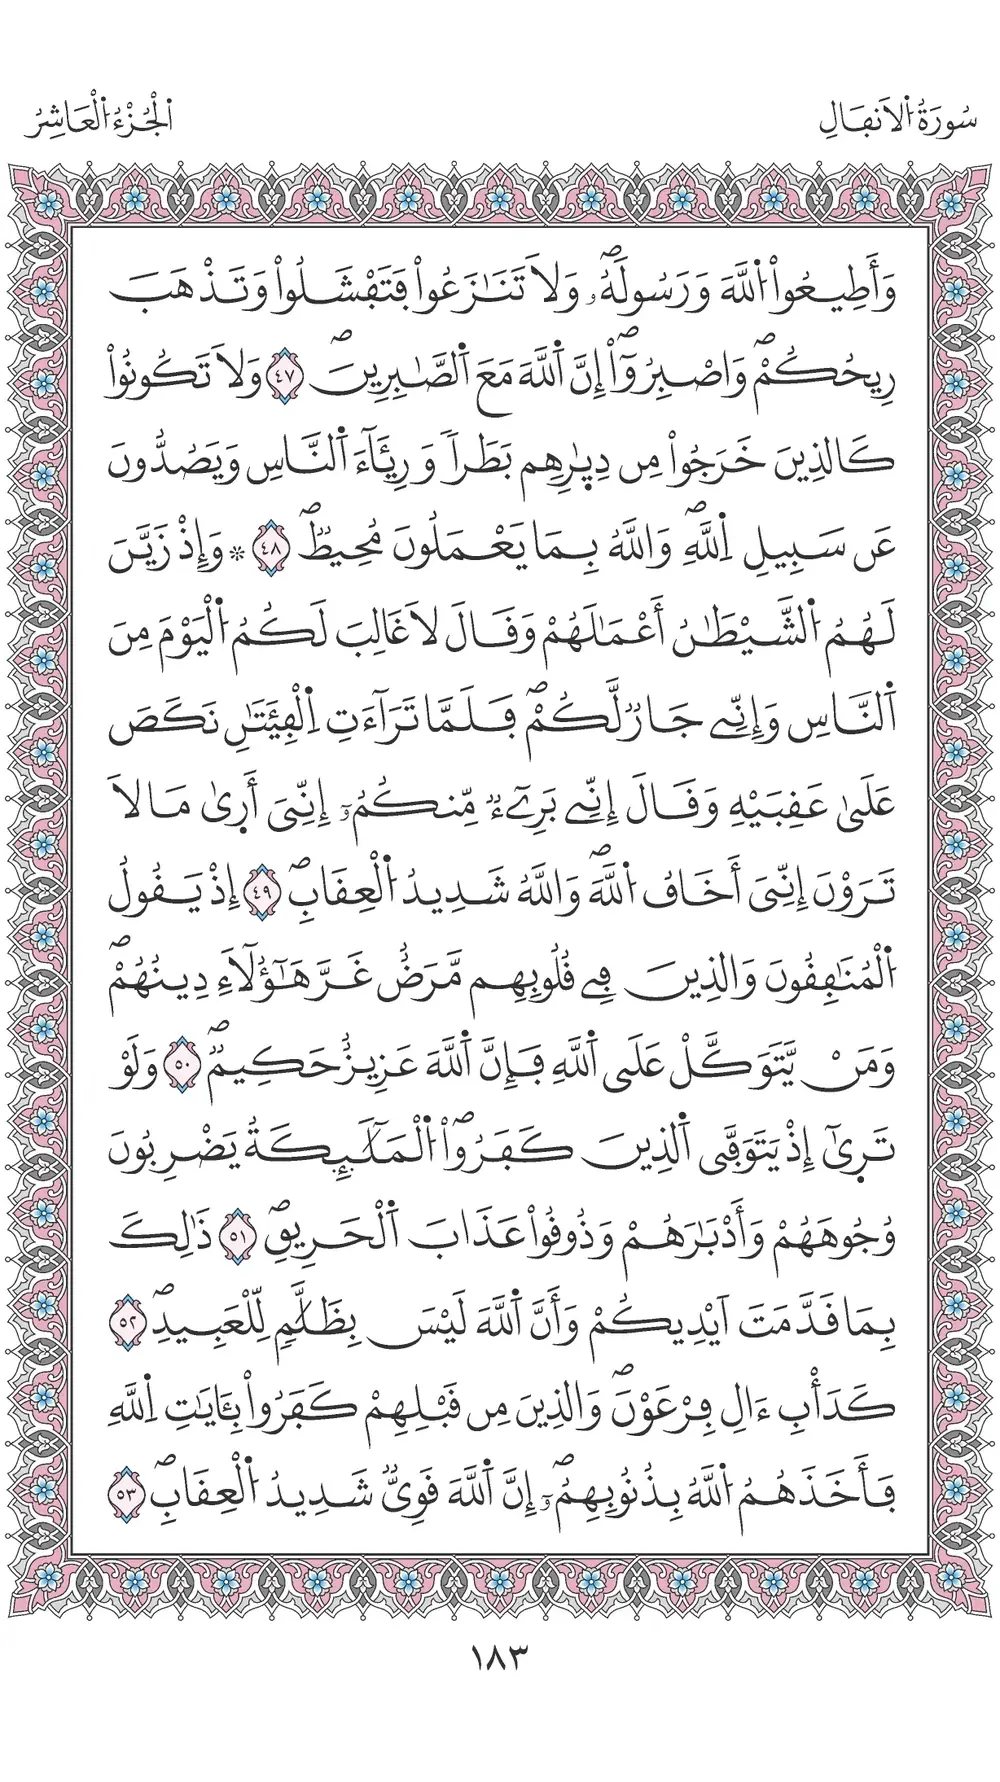 سُورَةُ اُ۬لَانفَالِ
اَ۬لْجُزْءُ اُ۬لْعَاشِرُ
وَأَطِيعُواْ اُ۬للَّهَ وَرَسُولَهُۥۖ وَلَا تَنَٰزَعُواْ فَتَفْشَلُواْ وَتَذْهَبَ
رِيحُكُمْۖ وَاصْبِرُوٓاْۖ إِنَّ اَ۬للَّهَ مَعَ اَ۬لصَّٰبِرِينَۖ ٤٧ وَلَا تَكُونُواْ
كَالذِينَ خَرَجُواْ مِن دِيٰ۪رِهِم بَطَراٗ وَرِئَآءَ اَ۬لنَّاسِ وَيَصُدُّونَ
عَن سَبِيلِ اِ۬للَّهِۖ وَاللَّهُ بِمَا يَعْمَلُونَ مُحِيطٞۖ ٤٨ ۞ وَإِذْ زَيَّنَ
لَهُمُ اُ۬لشَّيْطَٰنُ أَعْمَٰلَهُمْ وَقَالَ لَا غَالِبَ لَكُمُ اُ۬لْيَوْمَ مِنَ
اَ۬لنَّاسِ وَإِنِّے جَارٞ لَّكُمْۖ فَلَمَّا تَرَآءَتِ اِ۬لْفِئَتَٰنِ نَكَصَ
عَلَىٰ عَقِبَيْهِ وَقَالَ إِنِّے بَرِےٓءٞ مِّنكُمُۥٓ إِنِّيَ أَر۪ىٰ مَا لَا
تَرَوْنَ إِنِّيَ أَخَافُ اُ۬للَّهَۖ وَاللَّهُ شَدِيدُ اُ۬لْعِقَابِۖ ٤٩ إِذْ يَقُولُ
اُ۬لْمُنَٰفِقُونَ وَالذِينَ فِے قُلُوبِهِم مَّرَضٌ غَرَّ هَٰٓؤُلَآءِ دِينُهُمْۖ
وَمَنْ يَّتَوَكَّلْ عَلَى اَ۬للَّهِ فَإِنَّ اَ۬للَّهَ عَزِيزٌ حَكِيمٞۖ ٥٠ وَلَوْ
تَر۪ىٰٓ إِذْ يَتَوَفَّى اَ۬لذِينَ كَفَرُواْۖ اُ۬لْمَلَٰٓئِكَةُ يَضْرِبُونَ
وُجُوهَهُمْ وَأَدْبَٰرَهُمْ وَذُوقُواْ عَذَابَ اَ۬لْحَرِيقِۖ ٥١ ذَٰلِكَ
بِمَا قَدَّمَتَ اَيْدِيكُمْ وَأَنَّ اَ۬للَّهَ لَيْسَ بِظَلَّٰمٖ لِّلْعَبِيدِۖ ٥٢
كَدَأْبِ ءَالِ فِرْعَوْنَۖ وَالذِينَ مِن قَبْلِهِمْ كَفَرُواْ بِـَٔايَٰتِ اِ۬للَّهِ
فَأَخَذَهُمُ اُ۬للَّهُ بِذُنُوبِهِمُۥٓۖ إِنَّ اَ۬للَّهَ قَوِيّٞ شَدِيدُ اُ۬لْعِقَابِۖ ٥٣
١٨٣